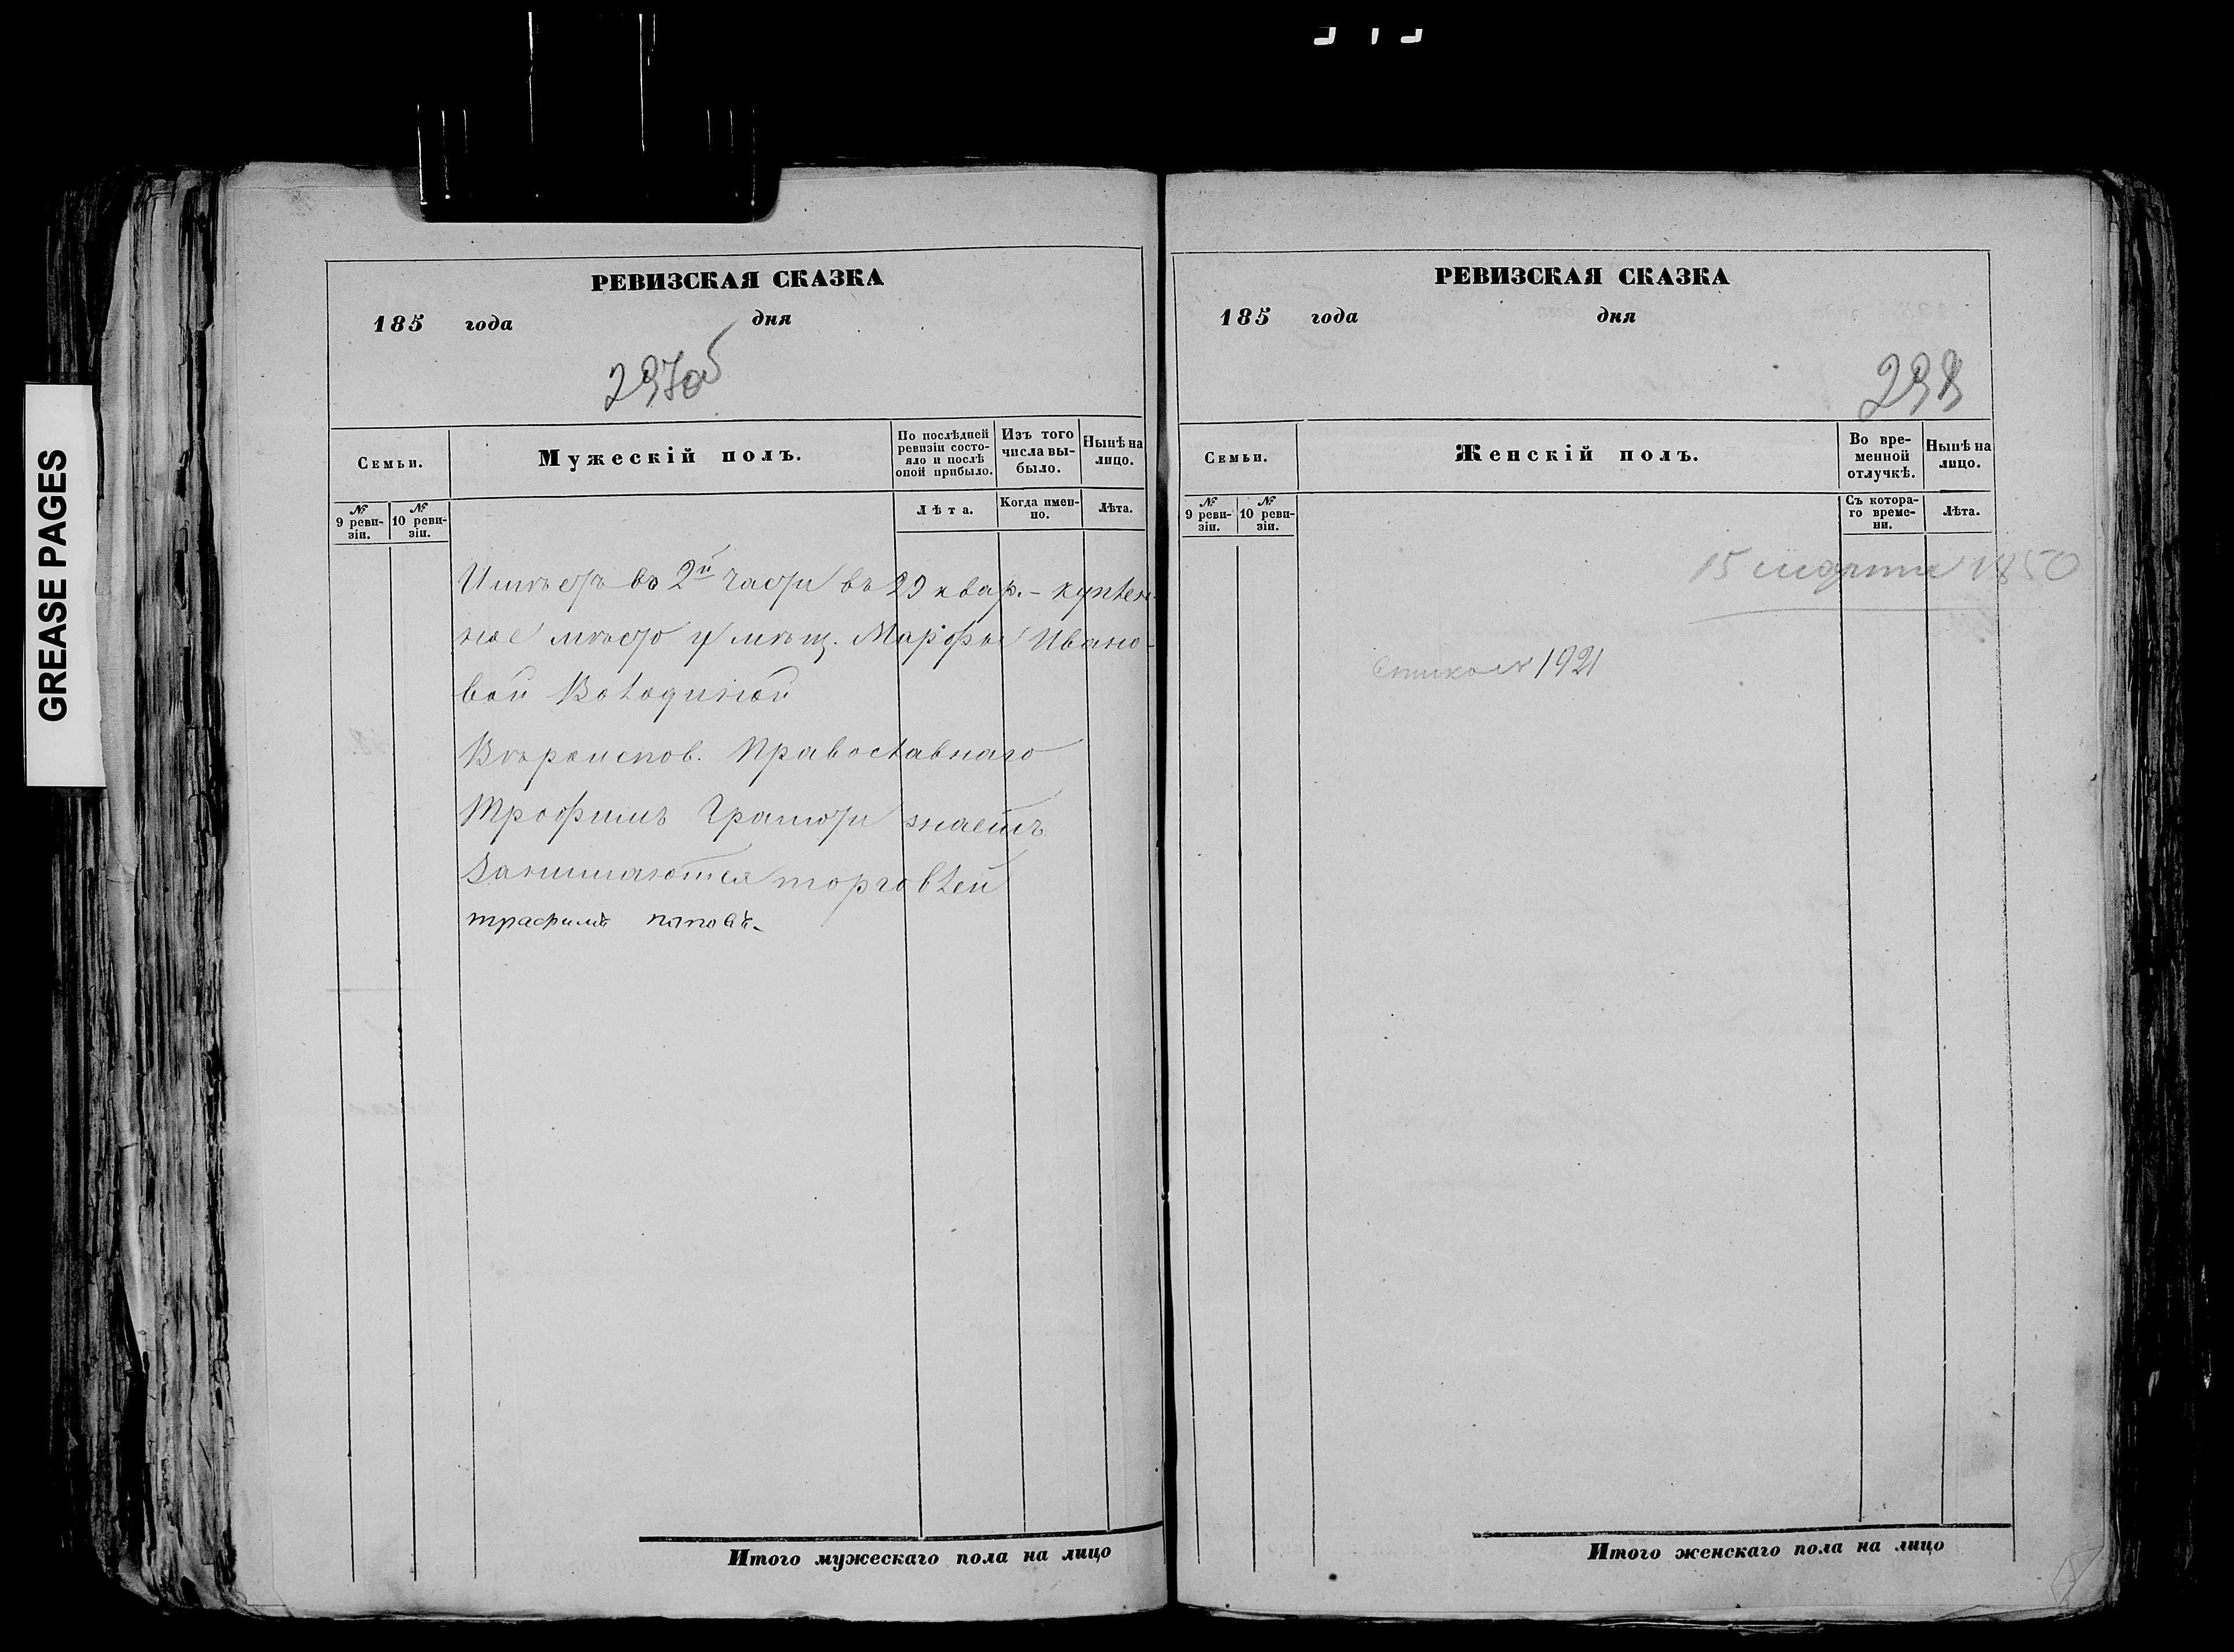 GREASE PAGES
РЕВИЗСКАЯ СКАЗКА
185 года дня
297об
Семьи.
Мужескій полъ.
По послѣдней ревизіи состояло и послѣ оной прибыло.
Изъ того числа выбыло.
Нынѣ на лицо.
№ 9 ревизіи.
№ 10 ревизіи.
Лѣта.
Когда именно.
Лѣта.
Имѣетъ во 2й части въ 29 квар. – куплен-
ное мѣсто у мѣщ. Марфы Ивано-
вой Володиной
Вѣроиспов. Православнаго
Трофимъ Грамоти знаетъ
Занимаются торговлей
трафимъ поповъ.
Итого мужескаго пола на лицо
РЕВИЗСКАЯ СКАЗКА
185 года дня
298
Семьи.
Женскій полъ.
Во временной отлучкѣ.
Нынѣ на лицо.
№ 9 ревизіи.
№ 10 ревизіи.
Съ котораго времени.
Лѣта.
15 марта 1850
1921
Итого женскаго пола на лицо